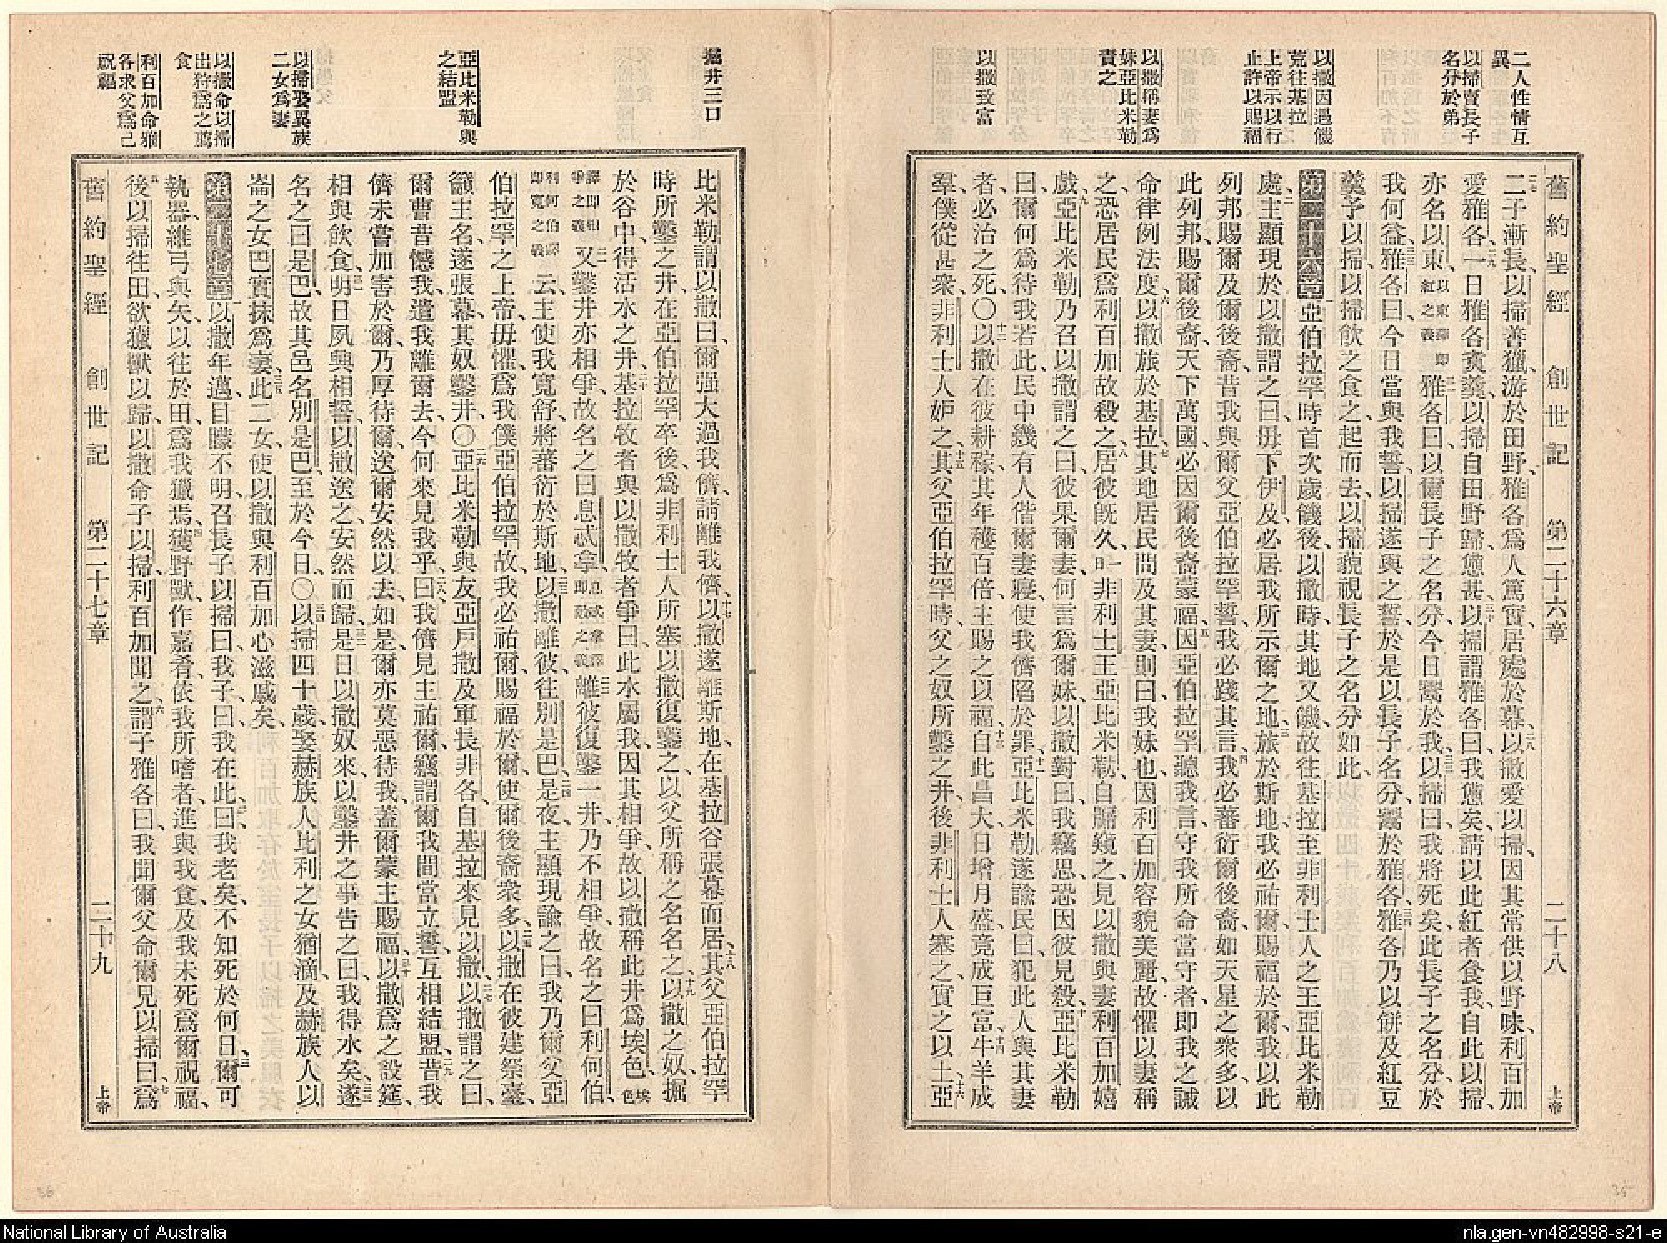 二人性情互
異
以掃賣長子
名分於弟
以撒因遇饑
荒往基拉
上帝示以行
止許以賜福
以撒稱妻爲
妹亞比米勒
責之
以撒致富
舊約聖經 創世記 第二十六章 二十八 上帝
二子漸長、以掃善獵、游於田野、雅各爲人篤實、居處於幕、以撒愛以掃、因其常供以野味、利百加
愛雅各、一日雅各煑羹、以掃自田野歸憊甚、以掃謂雅各曰、我憊矣、請以此紅者食我、自此以掃
亦名以東、以東譯卽紅之義雅各曰、以爾長子之名分、今日鬻於我、以掃曰、我將死矣、此長子之名分、於
我何益、雅各曰、今日當與我誓、以掃遂與之誓、於是以長子名分、鬻於雅各、雅各乃以餅及紅豆
羹予以掃、以掃飲之食之、起而去、以掃藐視長子之名分如此、
第二十六章 亞伯拉罕時、首次歲饑、後以撒時、其地又饑、故往基拉、至非利士人之王亞比米勒
處、主顯現於以撒、謂之曰、毋下伊及、必居我所示爾之地、旅於斯地、我必祐爾、賜福於爾、我以此
列邦、賜爾及爾後裔、昔我與爾父亞伯拉罕誓、我必踐其言、我必蕃衍爾後裔、如天星之衆多、以
此列邦、賜爾後裔、天下萬國、必因爾後裔蒙福、因亞伯拉罕聽我言、守我所命當守者、卽我之誡
命律例法度、以撒旅於基拉、其地居民問及其妻、則曰、我妹也、因利百加容貌美麗、故懼以妻稱
之、恐居民爲利百加故殺之、居彼旣久、一日非利士王亞比米勒自牖窺之、見以撒與妻利百加嬉
戲、亞比米勒乃召以撒、謂之曰、彼果爾妻、何言爲爾妹、以撒對曰、我竊思恐因彼見殺、亞比米勒
曰、爾何爲待我若此、民中幾有人偕爾妻寢、使我儕陷於罪、亞比米勒遂諭民曰、犯此人與其妻
者、必治之死、○以撒在彼耕稼、其年穫百倍、主賜之以福、自此昌大、日增月盛、竟成巨富、牛羊成
羣、僕從甚衆、非利士人妒之、其父亞伯拉罕時、父之奴所鑿之井、後非利士人塞之、實之以土、亞
掘井三口
亞比米勒與
之結盟
以掃娶異族
二女爲妻
以撒命以掃
出狩爲之備
食
利百加命雅
各求父爲己
祝福
比米勒謂以撒曰、爾强大過我儕、請離我儕、以撒遂離斯地、在基拉谷張幕而居、其父亞伯拉罕
時所鑿之井、在亞伯拉罕卒後、爲非利士人所塞、以撒復鑿之、以父所稱之名名之、以撒之奴掘
於谷中、得活水之井、基拉牧者與以撒牧者爭曰、此水屬我、因其相爭、故以撒稱此井爲埃色、埃色
譯卽相爭之義又鑿井、亦相爭、故名之曰息忒拿、息忒拿譯卽敵之義離彼復鑿一井、乃不相爭、故名之曰利何伯、
利何伯譯卽寬之義云、主使我寬舒、將蕃衍於斯地、以撒離彼、往別是巴、是夜主顯現、諭之曰、我乃爾父亞
伯拉罕之上帝、毋懼、爲我僕亞伯拉罕故、我必祐爾、賜福於爾、使爾後裔衆多、以撒在彼建祭臺、
籲主名、遂張幕、其奴鑿井、○亞比米勒與友亞戶撒、及軍長非各、自基拉來見以撒、以撒謂之曰、
爾曹昔憾我、遣我離爾去、今何來見我乎、曰、我儕見主祐爾、竊謂爾我間當立誓、互相結盟、昔我
儕未嘗加害於爾、乃厚待爾、送爾安然以去、如是、爾亦莫惡待我、蓋爾蒙主賜福、以撒爲之設筵、
相與飲食、明日夙興、相誓、以撒送之、安然而歸、是日以撒奴來、以鑿井之事告之曰、我得水矣、遂
名之曰是巴、故其邑名別是巴、至於今日、○以掃四十歲、娶赫族人比利之女猶滴、及赫族人以
崙之女巴實抹爲妻、此二女、使以撒與利百加心滋戚矣、
第二十七章 以撒年邁、目矇不明、召長子以掃曰、我子、曰、我在此、曰、我老矣、不知死於何日、爾可
執器、維弓與矢、以往於田、爲我獵焉、獲野獸、作嘉肴、依我所嗜者、進與我食、及我未死、爲爾祝福、
後以掃往田、欲獵獸以歸、以撒命子以掃、利百加聞之、謂子雅各曰、我聞爾父命爾兄以掃曰、爲
舊約聖經 創世記 第二十七章 二十九 上帝
36
35
National Library of Australia
nla.gen-vn482998-s21-e